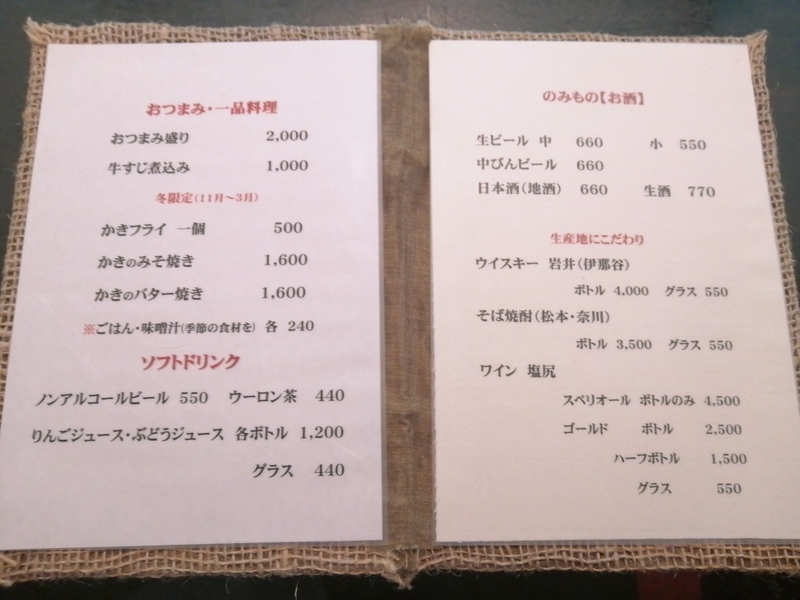 おつまみ・一品料理
おつまみ盛り 2,000
牛すじ煮込み 1,000
冬限定(11月~3月)
かきフライ 一個 500
かきのみそ焼き 1,600
かきのバター焼き 1,600
※ごはん・味噌汁(季節の食材を) 各 240
ソフトドリンク
ノンアルコールビール 550 ウーロン茶 440
りんごジュース・ぶどうジュース 各ボトル 1,200
グラス 440
のみもの【お酒】
生ビール 中 660 小 550
中びんビール 660
日本酒(地酒) 660 生酒 770
生産地にこだわり
ウイスキー 岩井(伊那谷)
ボトル 4,000 グラス 550
そば焼酎(松本・奈川)
ボトル 3,500 グラス 550
ワイン 塩尻
スペリオール ボトルのみ 4,500
ゴールド ボトル 2,500
ハーフボトル 1,500
グラス 550